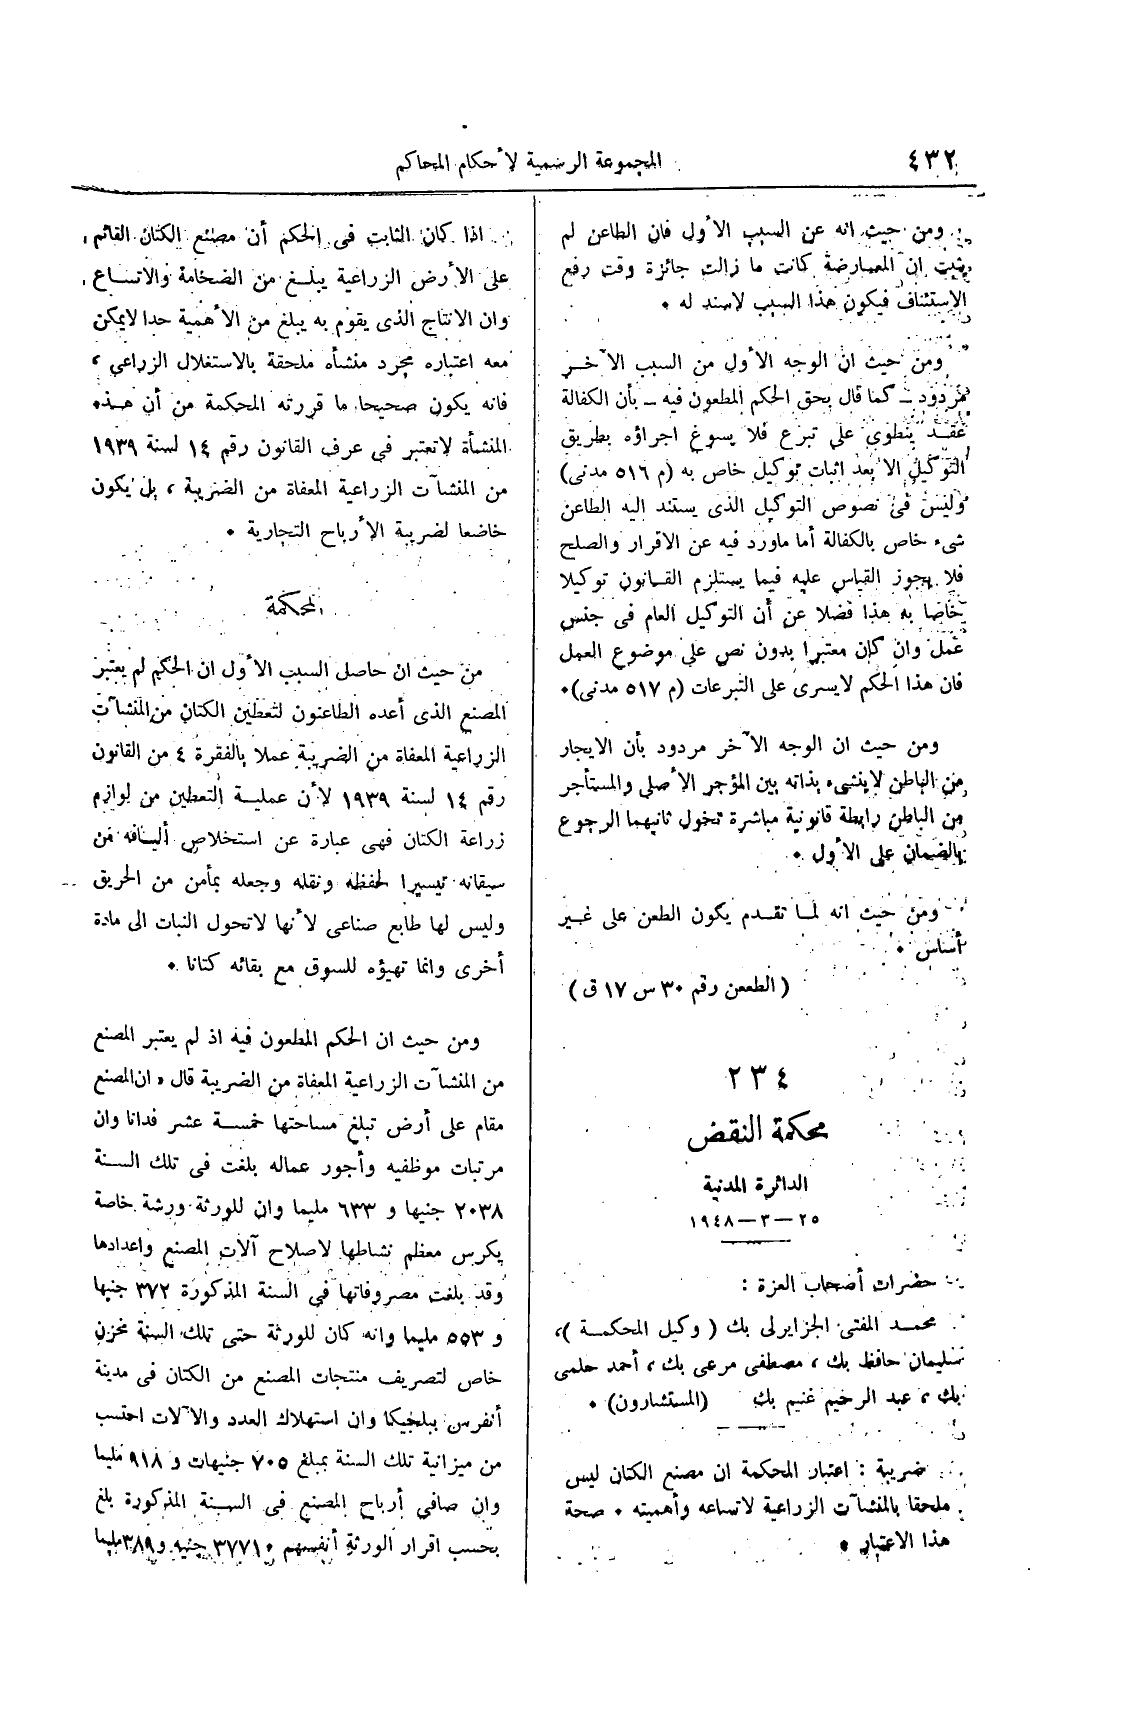 ٤٣٢
المجموعة الرسمية لأحكام المحاكم
ومن حيث انه عن السبب الأول فان الطاعن لم
يثبت ان المعارضة كانت ما زالت جائزة وقت رفع
الاستئناف فيكون هذا السبب لا سند له ٠
ومن حيث ان الوجه الأول من السبب الآخر
مردود ـ كما قال بحق الحكم المطعون فيه ـ بأن الكفالة
عقد ينطوي على تبرع فلا يسوغ اجراؤه بطريق
التوكيل الا بعد اثبات توكيل خاص به (م ٥١٦ مدنى)
وليس فى نصوص التوكيل الذى يستند اليه الطاعن
شىء خاص بالكفالة أما ماورد فيه عن الاقرار والصلح
فلا يجوز القياس عليه فيما يستلزم القانون توكيلا
خاصا به هذا فضلا عن أن التوكيل العام فى جنس
عمل وان كان معتبرا بدون نص على موضوع العمل
فان هذا الحكم لايسرى على التبرعات (م ٥١٧ مدنى)٠
ومن حيث ان الوجه الآخر مردود بأن الايجار
من الباطن لاينشىء بذاته بين المؤجر الأصلى والمستأجر
من الباطن رابطة قانونية مباشرة تخول ثانيهما الرجوع
بالضمان على الأول ٠
ومن حيث انه لما تقدم يكون الطعن على غير
أساس ٠
( الطعن رقم ٣٠ س ١٧ ق )
٢٣٤
محكمة النقض
الدائرة المدنية
٢٥ — ٣ — ١٩٤٨
حضرات أصحاب العزة :
محمد المفتى الجزايرلى بك ( وكيل المحكمة )،
سليمان حافظ بك ، مصطفى مرعى بك ، أحمد حلمى
بك ، عبد الرحيم غنيم بك (المستشارون) ٠
ضريبة : اعتبار المحكمة ان مصنع الكتان ليس
ملحقا بالمنشآت الزراعية لاتساعه وأهميته ٠ صحة
هذا الاعتبار ٠
اذا كان الثابت فى الحكم أن مصنع الكتان القائم
على الأرض الزراعية يبلغ من الضخامة والاتساع
وان الانتاج الذى يقوم به يبلغ من الأهمية حدا لايمكن
معه اعتباره مجرد منشأه ملحقة بالاستغلال الزراعي ،
فانه يكون صحيحا ما قررته المحكمة من أن هذه
المنشأة لاتعتبر في عرف القانون رقم ١٤ لسنة ١٩٣٩
من المنشآت الزراعية المعفاة من الضريبة ، بل يكون
خاضعا لضريبة الأرباح التجارية ٠
المحكمة
من حيث ان حاصل السبب الأول ان الحكم لم يعتبر
المصنع الذى أعده الطاعنون لتعطين الكتان من المنشآت
الزراعية المعفاة من الضريبة عملا بالفقرة ٤ من القانون
رقم ١٤ لسنة ١٩٣٩ لأن عملية التعطين من لوازم
زراعة الكتان فهى عبارة عن استخلاص أليافه من
سيقانه تيسيرا لحفظه ونقله وجعله بمأمن من الحريق
وليس لها طابع صناعى لأنها لاتحول النبات الى مادة
أخرى وانما تهيؤه للسوق مع بقائه كتانا ٠
ومن حيث ان الحكم المطعون فيه اذ لم يعتبر المصنع
من المنشآت الزراعية المعفاة من الضريبة قال « ان المصنع
مقام على أرض تبلغ مساحتها خمسة عشر فدانا وان
مرتبات موظفيه وأجور عماله بلغت فى تلك السنة
٢٠٣٨ جنيها و ٦٣٣ مليما وان للورثة ورشة خاصة
يكرس معظم نشاطها لاصلاح آلات المصنع واعدادها
وقد بلغت مصروفاتها فى السنة المذكورة ٣٧٢ جنيها
و ٥٥٣ مليما وانه كان للورثة حتى تلك السنة مخزن
خاص لتصريف منتجات المصنع من الكتان فى مدينة
أنفرس ببلجيكا وان استهلاك العدد والآلات احتسب
من ميزانية تلك السنة بمبلغ ٧٠٥ جنيهات و ٩١٨ مليما
وان صافي أرباح المصنع فى السنة المذكورة بلغ
بحسب اقرار الورثة أنفسهم ٣٧٧١٠ جنيه و٣٨٩مليما